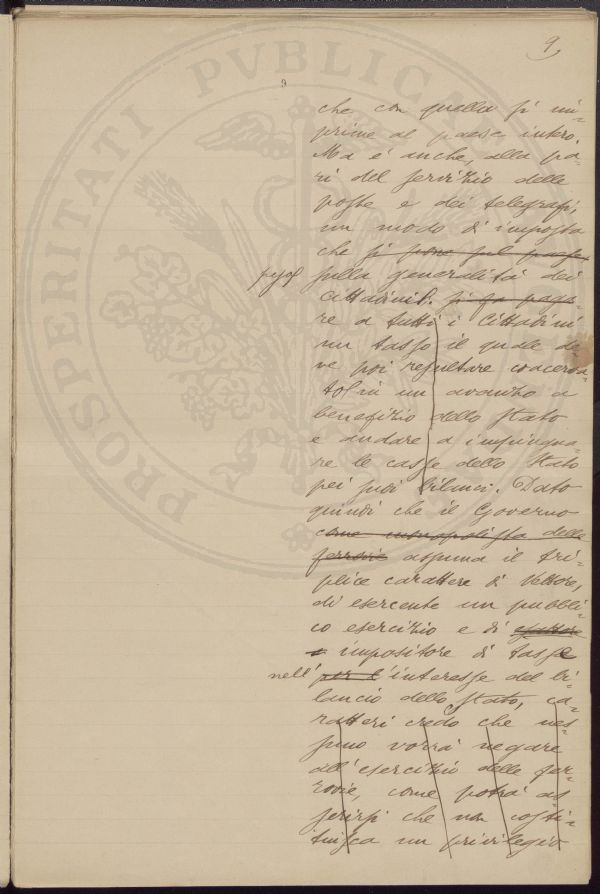 9
9
PROSPERITATI PVBLICAE
che con quella si im-
prime al paese intero.
Ma è anche, alla pa-
ri del servizio delle
poste e dei telegrafi,
un modo d'imposta
che si pone sul paese
sulla generalità dei
cittadini. si fa paga-
re a tutti i cittadini
un tasso il quale de-
ve poi resultare
in un avanzo a
benefizio dello Stato
e andare a impingua-
re le casse dello Stato
pei suoi bilanci. Dato
quindi che il Governo
come monopolista delle
ferrovie assuma il tri-
plice carattere di Vettore,
di esercente un pubbli-
co esercizio e di
e impositore di tasse
nell' per l'interesse del bi-
lancio dello Stato, ca-
ratteri credo che nes-
suno vorrà negare
all'esercizio delle fer-
rovie, come potrà as-
serirsi che non costi-
tuisca un privilegio